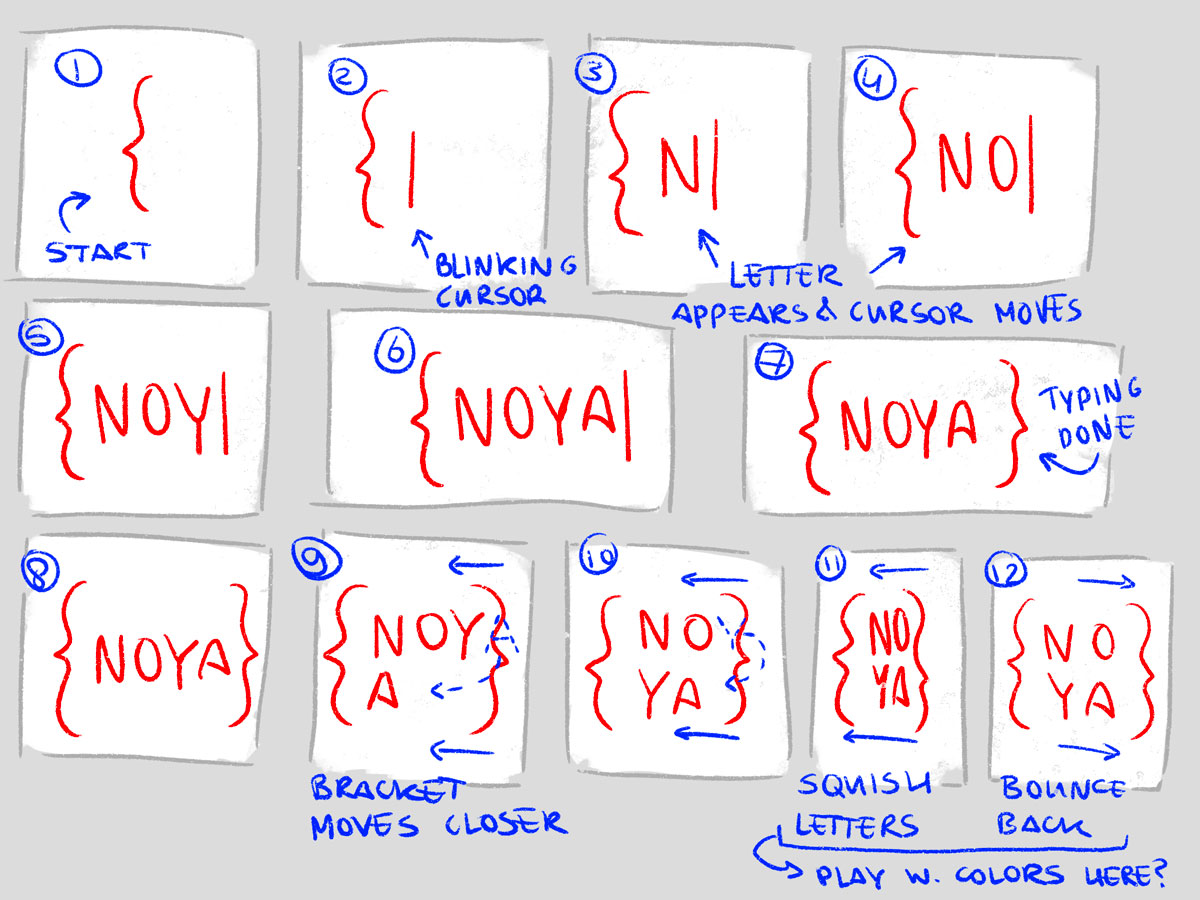 1
{
START
2
{ |
BLINKING
CURSOR
3
{ N|
4
{ NO|
LETTER
APPEARS & CURSOR MOVES
5
{ NOY|
6
{ NOYA|
7
{ NOYA }
TYPING
DONE
8
{ NOYA }
9
{ NOY }
A
BRACKET
MOVES CLOSER
10
{ NO }
YA
11
{ NO }
YA
SQUISH
LETTERS
12
{ NO }
YA
BOUNCE
BACK
PLAY W. COLORS HERE?